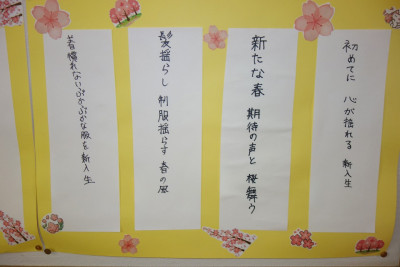 初めてに 心が揺れる 新入生
新たな春 期待の声と 桜舞う
髪揺らし 制服揺らす 春の風
着慣れないぶかぶかな服を新入生